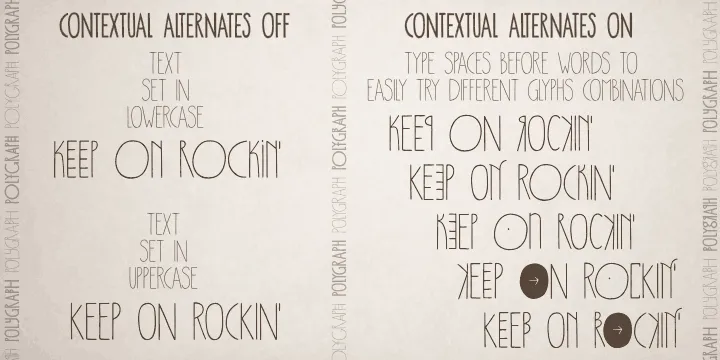 CONTEXTUAL ALTERNATES OFF
TEXT
SET IN
LOWERCASE
KEEP ON ROCKIN'
TEXT
SET IN
UPPERCASE
KEEP ON ROCKIN'
CONTEXTUAL ALTERNATES ON
TYPE SPACES BEFORE WORDS TO
EASILY TRY DIFFERENT GLYPHS COMBINATIONS
KEEP ON ROCKIN'
KEEP ON ROCKIN'
KEEP ON ROCKIN'
KEEP ON ROCKIN'
KEEP ON ROCKIN'
POLYGRAPH POLYGRAPH POLYGRAPH POLYGRAPH POLYGRAPH
POLYGRAPH POLYGRAPH POLYGRAPH POLYGRAPH POLYGRAPH
POLYGRAPH POLYGRAPH POLYGRAPH POLYGRAPH POLYGRAPH